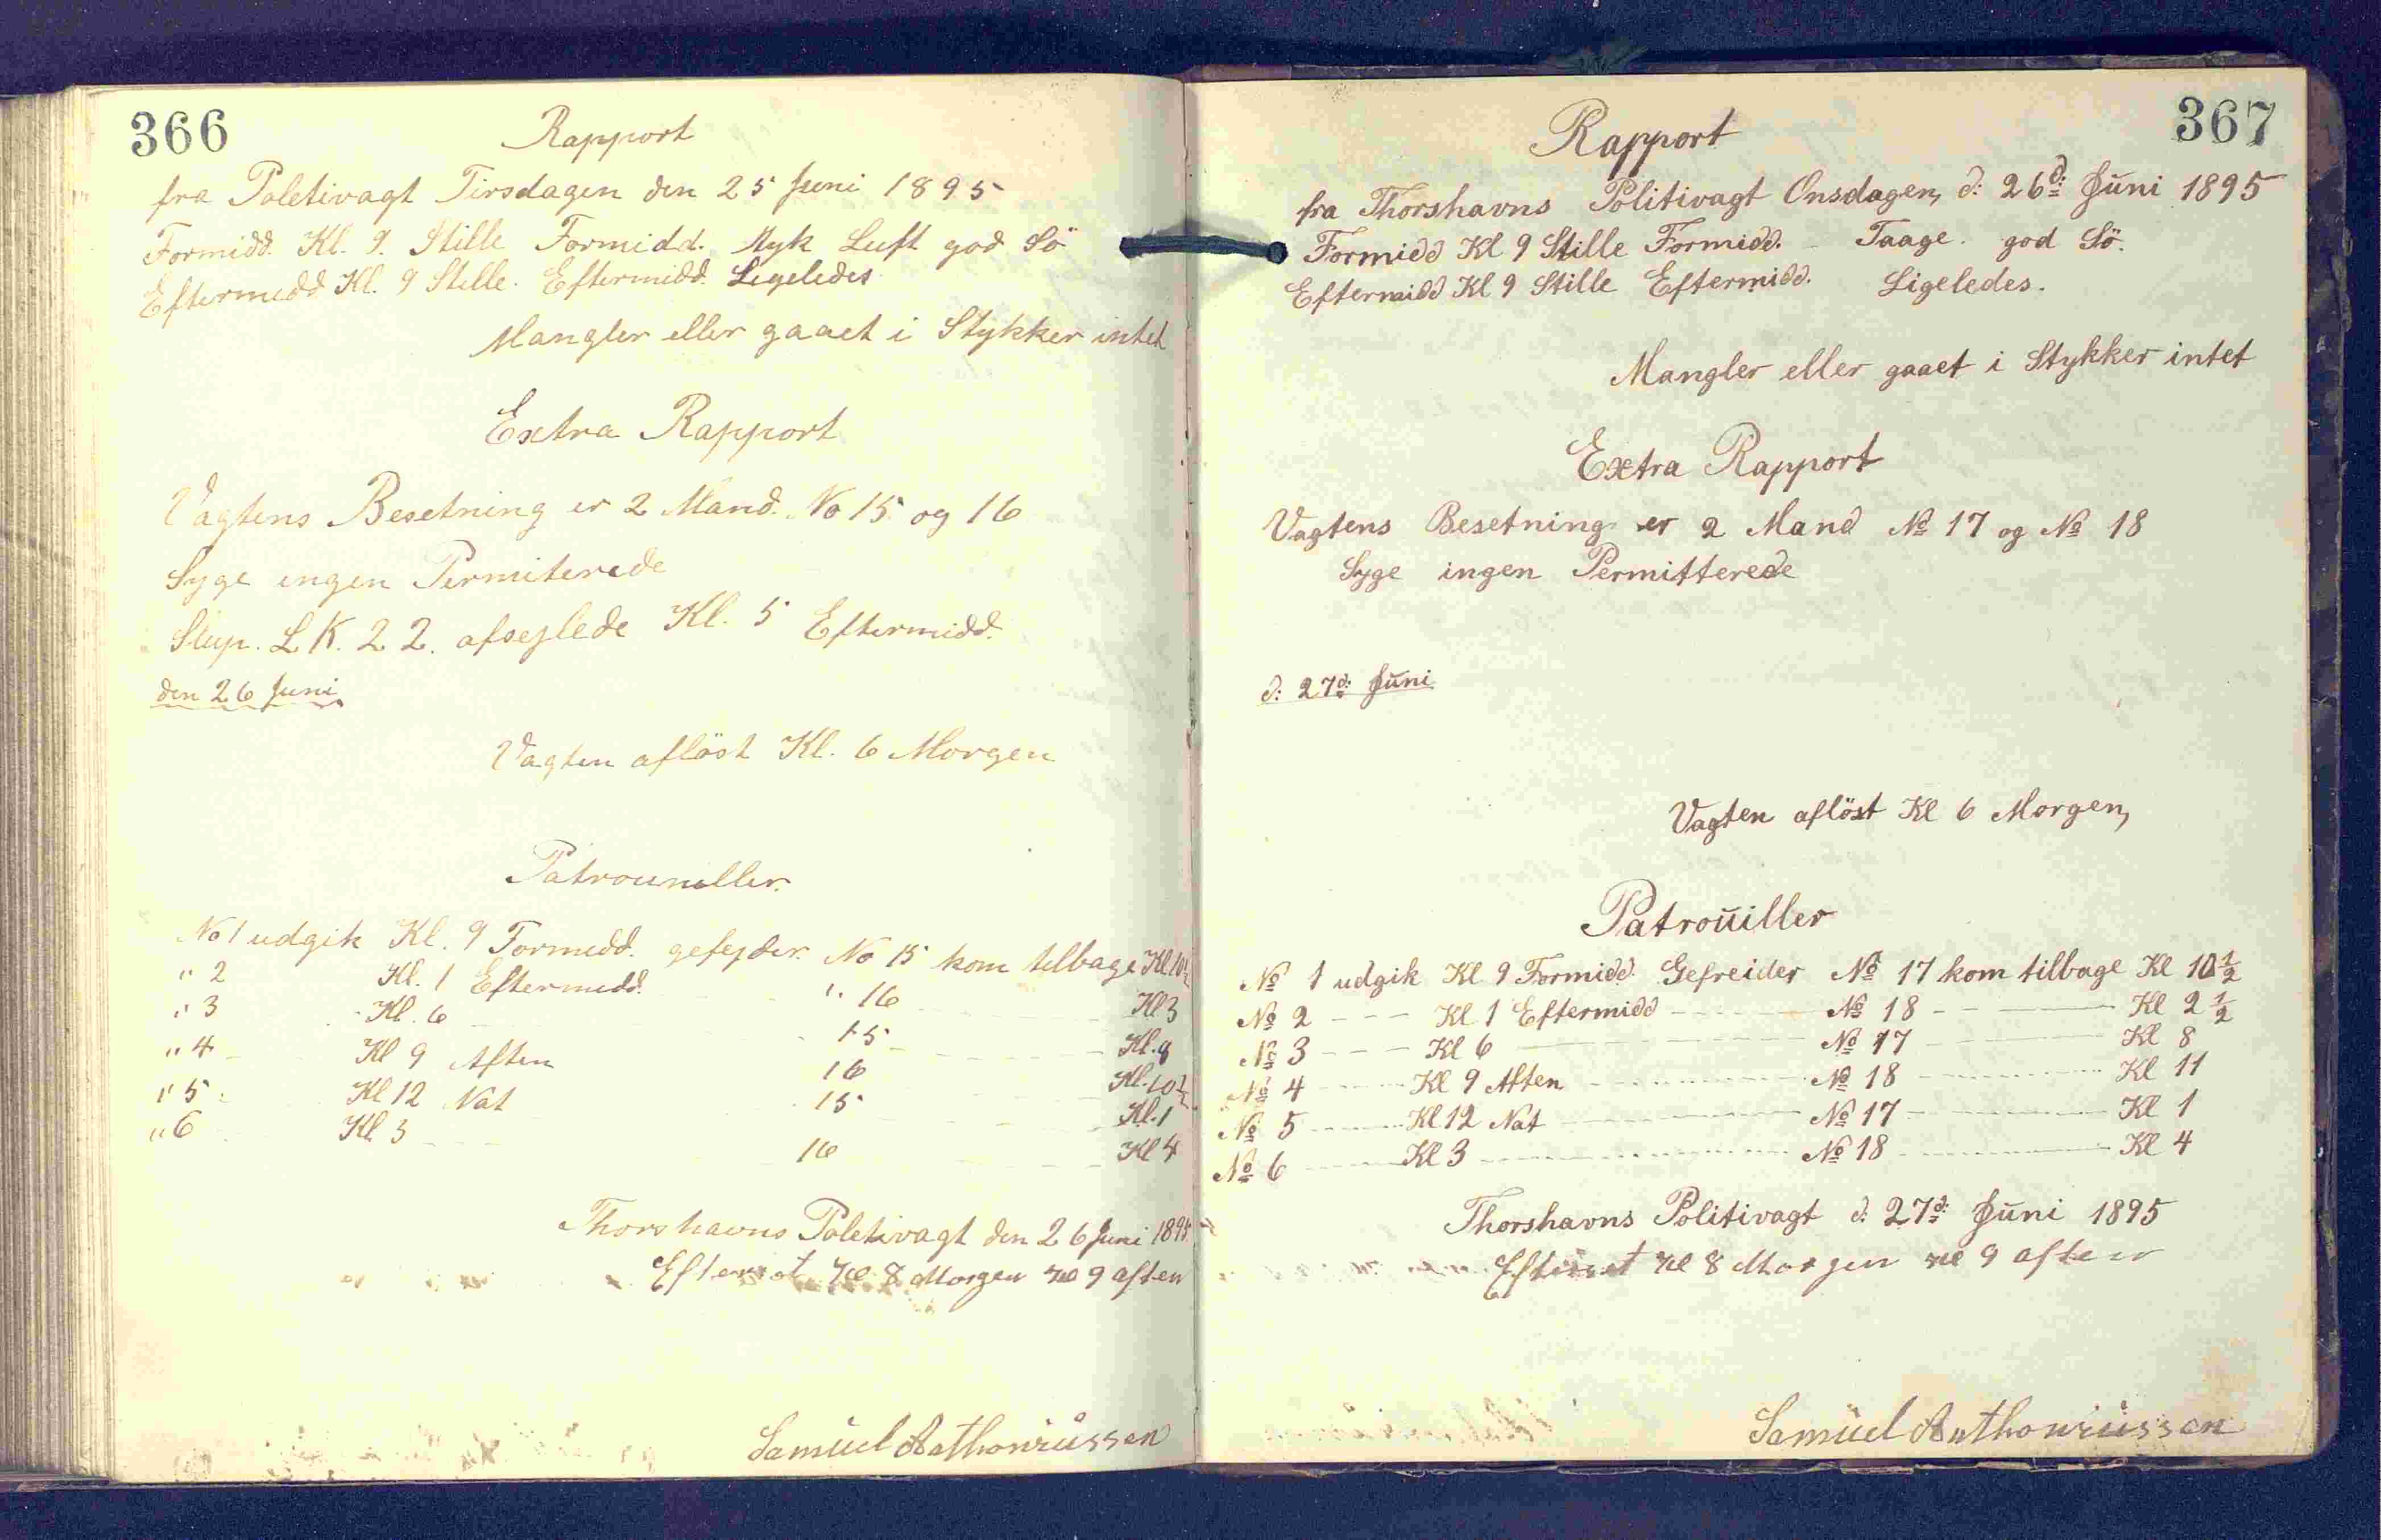 366
Rapport
fra Poletivagt Tirsdagen den 25 Juni 1895
Formidd. Kl. 9. Stille Formidd. Myk Luft god Sö
Eftermidd Kl. 9 Stille. Eftermidd. Ligeledes
Mangler eller gaaet i Stykker intet
Extra Rapport
Vagtens Besetning er 2 Mand. No 15 og 16
Syge ingen Permiterede
Slup. L K. 22. afseglede Kl. 5 Eftermidd.
den 26 Juni
Vagten aflöst Kl. 6 Morgen
Patrouniller
No 1 udgik Kl. 9 Formidd. gefejder. No 15 kom telbage Kl 10½
" 2 Kl. 1 Eftermidd. " 16 Kl 3
" 3 Kl. 6 15 Kl. 8
" 4 Kl 9 Aften 16 Kl. 10½
" 5 Kl 12 Nat 15 Kl. 1
" 6 Kl 3 16 Kl 4
Thorshavns Poletivagt den 26 Juni 1895
Efterset Kl 8 Morgen Kl 9 aften
Samüel Anthoniüssen
367
Rapport
fra Thorshavns Politivagt Onsdagen, d: 26d: Jüni 1895
Formidd Kl 9 Stille Formidd. – Taage. god Sö.
Eftermidd Kl 9 Stille Eftermidd. Ligeledes.
Mangler eller gaaet i Stykker intet
Extra Rapport
Vagtens Besetning er 2 Mand No 17 og No 18
Syge ingen Permitterede
d: 27d: Jüni
Vagten aflöst Kl 6 Morgen,
Patroüiller
No 1 udgik Kl 9 Formidd. Gefreider No 17 kom tilbage Kl 10½
No 2 --- Kl 1 Eftermidd --- No 18 --- Kl 2½
No 3 --- Kl 6 --- No 17 --- Kl 8
No 4 --- Kl 9 Aften --- No 18 --- Kl 11
No 5 --- Kl 12 Nat --- No 17 --- Kl 1
No 6 --- Kl 3 --- No 18 --- Kl 4
Thorshavns Politivagt d: 27d: Jüni 1895
Efterset Kl 8 Morgen Kl 9 aften
Samüel Anthoniüssen